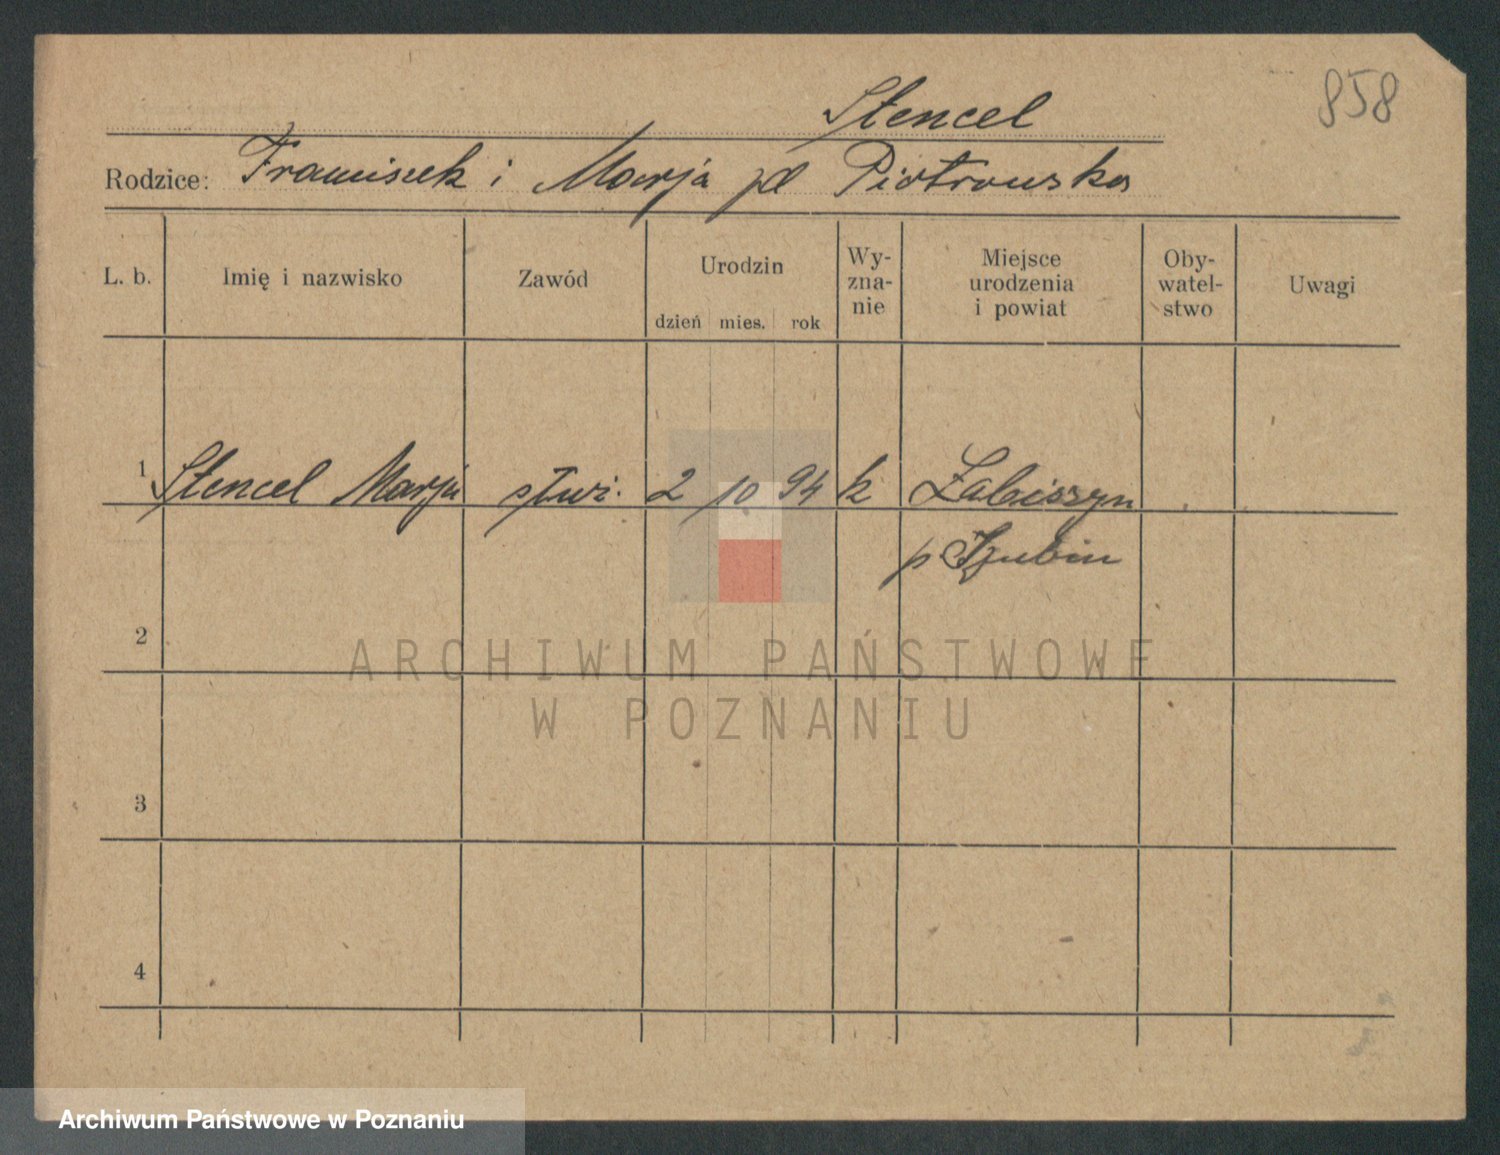 858
Stencel
Rodzice: Franciszek i Marja zd Piotrowska
L. b. Imię i nazwisko Zawód Urodzin dzień mies. rok Wy-zna-nie Miejsce urodzenia i powiat Oby-watel-stwo Uwagi
1 Stencel Marja służ. 2 10. 94 k Łabiszyn
p Szubin
2
ARCHIWUM PAŃSTWOWE
W POZNANIU
3
4
Archiwum Państwowe w Poznaniu